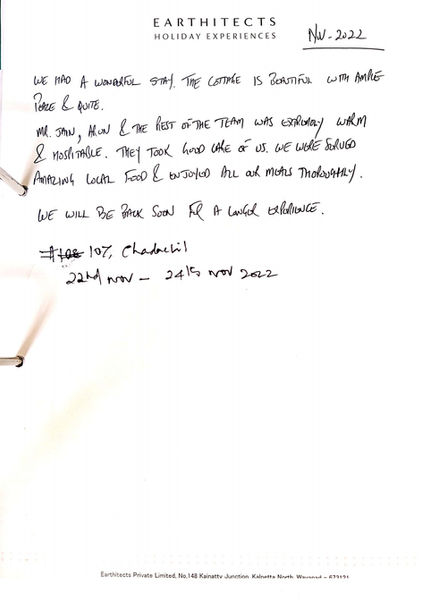 EARTHITECTS
HOLIDAY EXPERIENCES
Nov - 2022
WE HAD A WONDERFUL STAY. THE COTTAGE IS BEAUTIFUL WITH AMPLE
PEACE & QUITE.
MR. JAIN, ARUN & THE REST OF THE TEAM WAS EXTREMELY WARM
& HOSPITABLE. THEY TOOK GOOD CARE OF US. WE WERE SERVED
AMAZING LOCAL FOOD & ENJOYED ALL OUR MEALS THOROUGHLY.
WE WILL BE BACK SOON FOR A LONGER EXPERIENCE.
107,
22nd nov - 24th nov 2022
Earthitects Private Limited, No,148 Kainatty Junction, Kalpetta North, Wayanad - 673121